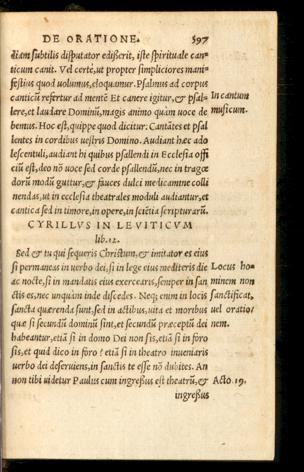 DE ORATIONE. 597
diam subtilis disputator edißerit, iste spirituale can=
ticum canit. Vel certè, ut propter simpliciores mani=
festius quod uolumus, eloquamur. Psalmus ad corpus
canticũ refertur ad mentẽ Et canere igitur, & psal=
In cantum
lere, et laudare Dominũ, magis animo quàm uoce de
musicum.
bemus. Hoc est, quippe quod dicitur: Cantãtes et psal
lentes in cordibus uestris Domino. Audiant hæc ado
lescentuli, audiant hi quibus psallendi in Ecclesia offi
ciũ est, deo nõ uoce sed corde psallendũ, nec in tragœ
dorũ modũ guttur, & fauces dulci medicamine colli
nendas, ut in ecclesia theatrales moduli audiantur, et
cantica sed in timore, in opere, in sciẽtia scripturarũ.
CYRILLVS IN LEVITICVM
lib. 12.
Sed & tu qui sequeris Christum, & imitator es eius
si permaneas in uerbo dei, si in lege eius mediteris die
Locus ho=
ac nocte, si in mandatis eius exercearis, semper in san
minem non
ctis es, nec unquàm inde discedes. Neq; enim in locis
sanctificat,
sancta quærenda sunt, sed in actibus, uita et moribus
uel oratio/
quæ si secundũ dominũ sint, et secundũ præceptũ dei
nem.
habeantur, etiã si in domo Dei non sis, etiã si in foro
sis, et quid dico in foro? etiã si in theatro inueniaris
uerbo dei deseruiens, in sanctis te esse nõ dubites. An
non tibi uidetur Paulus cum ingreßus est theatrũ, &
Acto. 19.
ingreßus